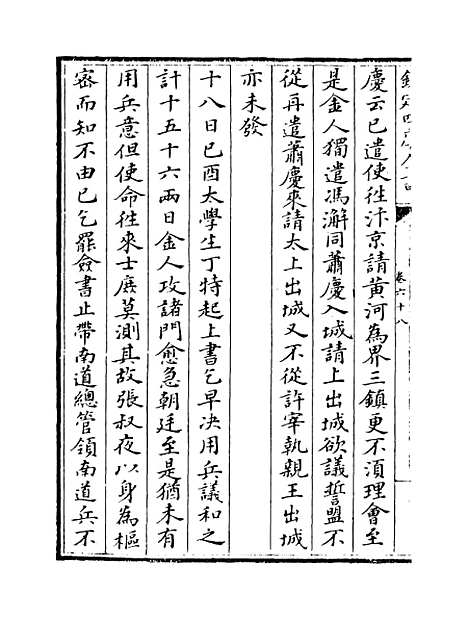 慶云已遣使徃汴京請黄河為界三鎮更不湏理會至
是金人獨遣馮澥同蕭慶入城請上出城欲議誓盟不
從再遣蕭慶來請太上出城又不從許宰執親王出城
亦未發
十八日已酉太學生丁特起上書乞早决用兵議和之
計十五十六兩日金人攻諸門愈急朝廷至是猶未有
用兵意但使命徃來士庶莫測其故張叔夜以身為樞
宻而知不由已乞罷僉書止帶南道總管領南道兵不
卷六十八